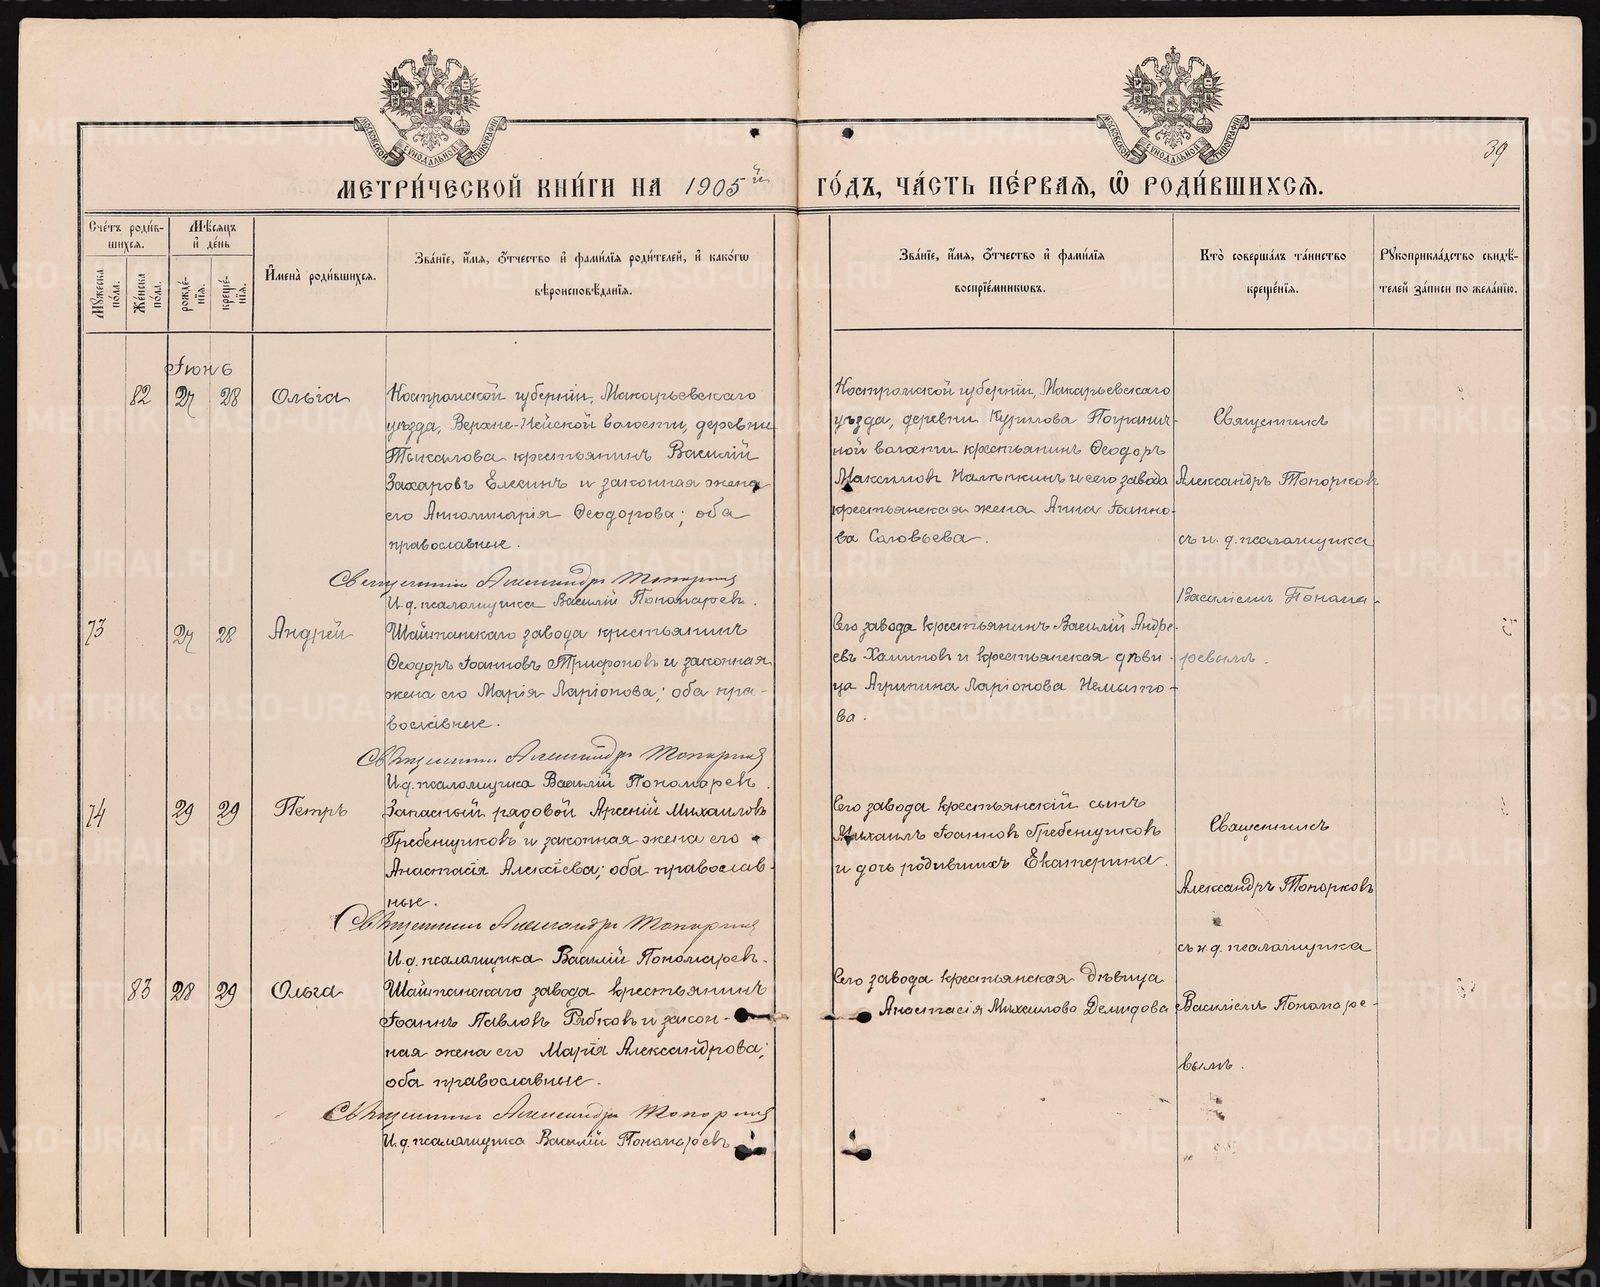 39
МЕТРИ́ЧЕСКОЙ КНИ́ГИ НА 1905й ГО́ДЪ, ЧА́СТЬ ПЕ́РВАѦ, Ѡ҆ РОДИ́ВШИХСѦ.
Сче́тъ роди́в-
шихсѧ.
Мѣ́сѧцъ
и҆ де́нь
Мꙋ́жеска
по́ла.
Же́нска
по́ла.
рожде́-
нїѧ.
креще́-
нїѧ.
И҆мена̀ роди́вшихсѧ.
Зва́нїе, и҆́мѧ, ѻ҆́тчество и҆ фами́лїѧ роди́телей, и҆ како́гѡ
вѣроисповѣ́данїѧ.
Зва́нїе, и҆́мѧ, ѻ҆́тчество и҆ фами́лїѧ
воспрїе́мникѡвъ.
Кто̀ соверша́лъ та́инство
креще́нїѧ.
Рꙋкоприкла́дство свидѣ́-
телей за́писи по жела́нїю.
Іюнь
82 27 28 Ольга
Костромской губерніи, Макарьевскаго
уѣзда, Верхне-Нейской волости, деревни
крестьянинъ Василій
Захаровъ Елесинъ и законная жена
его Апполинарія Ѳеодорова; оба
православные.
Священникъ Александръ Топорковъ
И.д. псаломщика Василій Пономаревъ.
Костромской губерніи, Макарьевскаго
уѣзда, деревни Курилова Погранич-
ной волости крестьянинъ Ѳеодоръ
Максимовъ и сего завода
крестьянская жена Анна Іоанно-
ва Соловьева.
Священникъ
Александръ Топорковъ
съ и. д. псаломщика
Василіемъ Понома-
ревымъ.
73 27 28 Андрей
Шайтанскаго завода крестьянинъ
Ѳеодоръ Іоанновъ Трифоновъ и законная
жена его Марія Ларіонова; оба пра-
вославные.
Священникъ Александръ Топорковъ
И.д. псаломщика Василій Пономаревъ.
Сего завода крестьянинъ Василій Андре-
евъ Хаминовъ и крестьянская дѣви-
ца Агрипина Ларіонова Немыто-
ва.
74 29 29 Петръ
Запасный рядовой Арсеній Михаиловъ
Гребенщиковъ и законная жена его
Анастасія Алексіева; оба православ-
ные.
Священникъ Александръ Топорковъ
И.д. псаломщика Василій Пономаревъ.
Сего завода крестьянскій сынъ
Михаилъ Іоанновъ Гребенщиковъ
и дочь родившихъ Екатерина.
Священникъ
Александръ Топорковъ
съ и.д. псаломщика
Василіемъ Пономаре-
вымъ.
83 28 29 Ольга
Шайтанскаго завода крестьянинъ
Іоаннъ Павловъ Рябковъ и закон-
ная жена его Марія Александрова;
оба православные.
Священникъ Александръ Топорковъ
И.д. псаломщика Василій Пономаревъ
Сего завода крестьянская дѣвица
Анастасія Михаилова Демидова